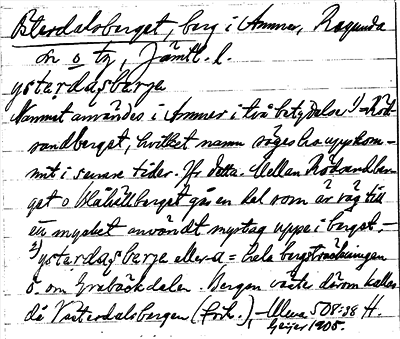 Österdalsberget, berg i Ammer, Ragunda
sn o tg, Jämtl. l.
ystəṛdaḷsbärjə
Namnet användes i Ammer i två betydelser 1) = Röd-
sandberget, hvilket namn säges ha uppkom-
mit i senare tider. Jfr detta. Mellan Rödsandber
get o Blåhällberget går en dal som är väg till
en mycket använd myrtag uppe i berget. —
2) ystəṛdaḷsbärjə eller -a = hela bergsträckningen
ö. om Grabäckdalen. Bergen väster därom kallas
då Västerdalsbergen (forts.), 508:38 H.
Geijer 1905.